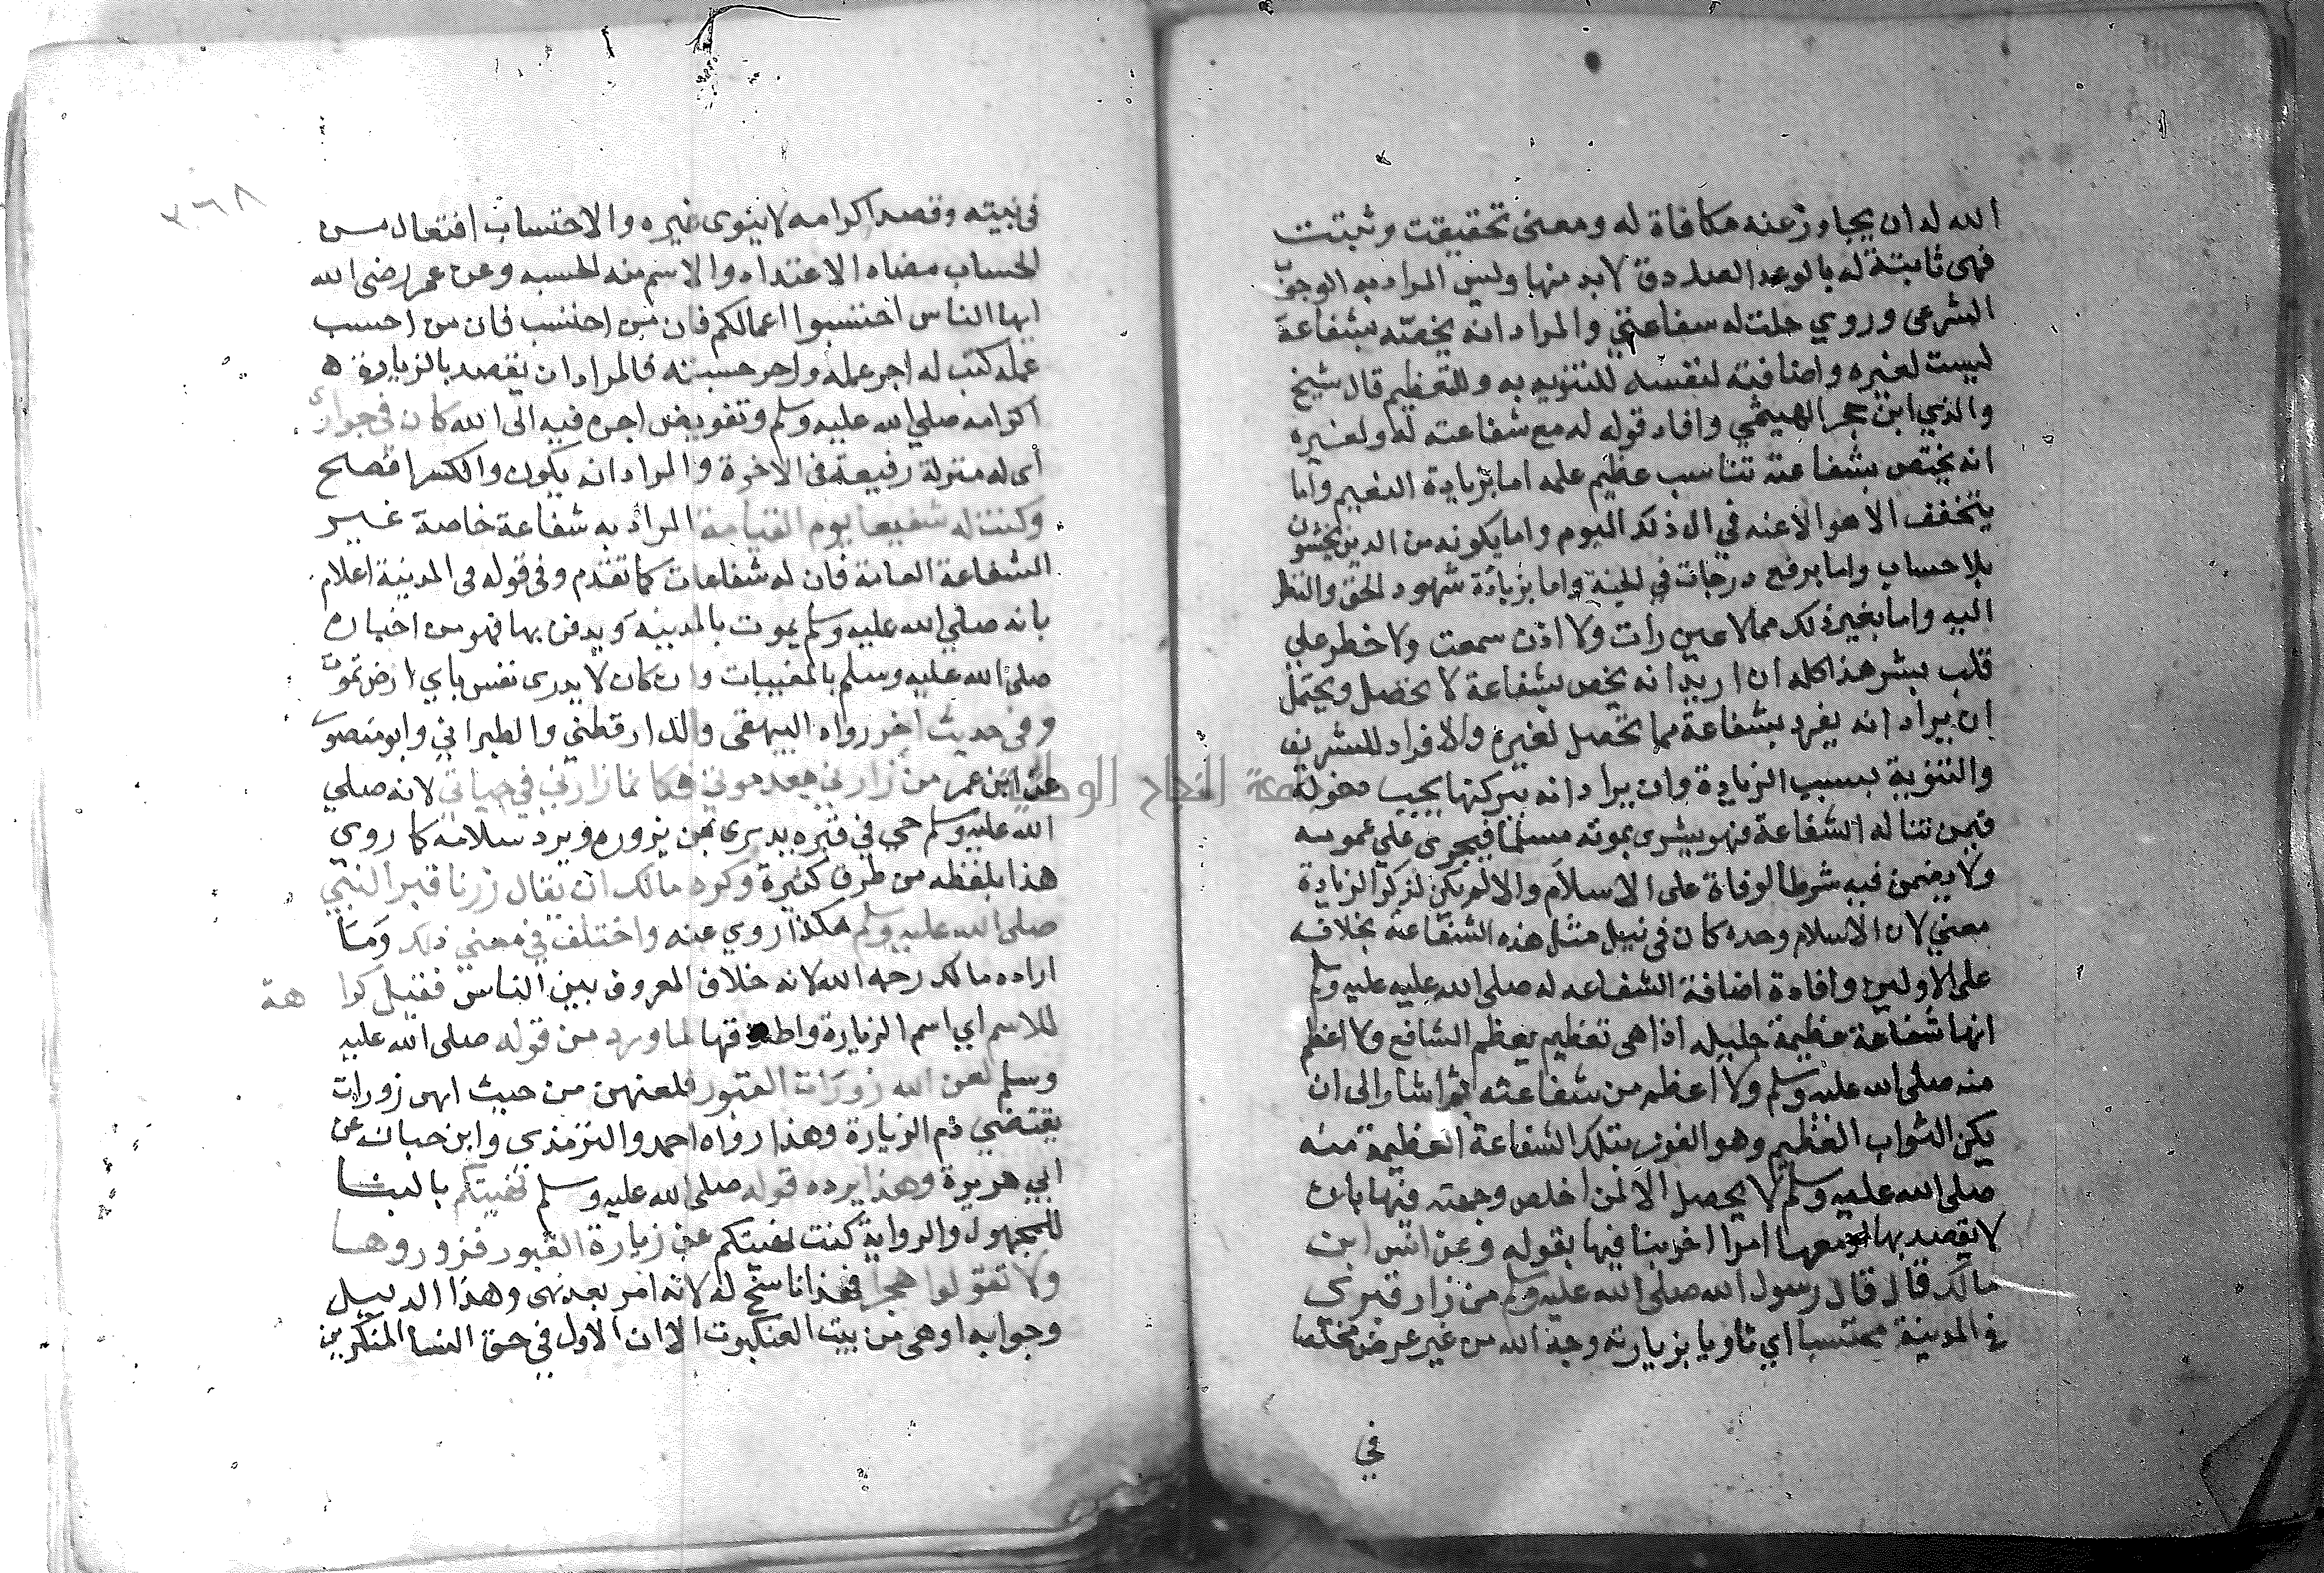 الله له ان يجاوز عنه مكافاة له ومعنى تحقيقت وثبتت
فهى ثابتة له بالوعد الصادق لابد منها وليس المراد به الوجوب
الشرعى وروي حلت له شفاعتي والمراد انه يخصه بشفاعة
ليست لغيره واضافته لنفسه للتنويه به وللتعظيم قال شيخ
والدي ابن حجر الهيتمي وافاد قوله له مع شفاعته له ولغيره
انه يختص بشفاعة تناسب عظيم علمه اما بزيادة النعيم واما
بتخفف الاهوال عنه في ال ذلك اليوم واما بكونه من الذين يحشرون
بلا حساب واما برفع درجات في الجنة واما بزيادة شهود الحق والنظر
اليه واما بغير ذلك مما لا عين رات ولا اذن سمعت ولا خطر علي
قلب بشر هذا كله ان اريد انه يخص بشفاعة لا تحصل ويحتمل
ان يراد انه يفرد بشفاعة مما تحصل لغيره والافراد للتشريف
والتنوية بسبب الزيادة وان يراد انه ببركتها يجب دخوله
فيمن تناله الشفاعة فهو بشرى بموته مسلما فيجرى على عمومه
ولا يضمن فيه شرط الوفاة على الاسلام والا لم يكن لذكر الزيادة
معني لان الاسلام وحده كان في نيل مثل هذه الشفاعة بخلافه
على الاولين وافادة اضافة الشفاعه له صلى الله عليه عليه وسلم
انها شفاعة عظيمة جليله اذا هى تعظيم بعظم الشافع ولا اعظم
منه صلى الله عليه وسلم ولا اعظم من شفاعته ثم اشار الى ان
يكن الثواب العظيم وهو الفوز بتلك الشفاعة العظيمة منه
صلى الله عليه وسلم لا يحصل الا لمن اخلص وجهته فيها بان
لا يقصد بها معها امرا اخر بنا فيها بقوله وعن انس ابن
مالك قال قال رسول الله صلى الله عليه وسلم من زار قبري
في المدينة محتسبا اي ناويا بزيارته وجه الله من غير عرض مخلصا
في
٣٦٨
في نيته وقصد اكرامه لا ينوى غيره والاحتساب افتعال من
الحساب معناه الاعتداد والاسم منه الحسبه وعن عمر رضى الله
ايها الناس احتسبوا اعمالكم فان من احتسب فان من احسب
عمله كتب له اجر عمله واجر حسبته فالمراد ان يقصد بالزيارة ه
اكرامه صلي الله عليه وسلم وتفويض اجره فيه الى الله كان في جواري
أى له منزلة رفيعة في الاخرة والمراد انه يكون والكسر افصح
وكنت له شفيعا يوم القيامة المراد به شفاعة خاصة غير
الشفاعة العامة فان له شفاعات كما تقدم وفى قوله في المدينة اعلام
بانه صلي الله عليه وسلم يموت بالمدينه ويدفن بها فهو من اخباره
صلى الله عليه وسلم بالمغيبات وان كان لا يدرى نفس باي ارض تموت
وفي حديث اخر رواه البيهقى والدارقطني والطبراني وابو منصور
عن ابن عمر من زارني بعد موتي فكانما زارني في حياتي لانه صلي
الله عليه وسلم حي في قبره يدرى بمن يزوره ويرد سلامه كما روي
هذا بلفظه من طرق كثيرة وكره مالك ان يقال زرنا قبر النبي
صلى الله عليه وسلم هكذا روي عنه واختلف في معني ذلك وما
اراده مالك رحمه الله لانه خلاف المعروف بين الناس فقيل كرا هة
للاسم اي اسم الزيارة واطلاقها لما ورد من قوله صلى الله عليه
وسلم لعن الله زورات القبور فلعنهن من حيث انهن زورات
يقتضي ذم الزيارة وهذا رواه احمد والترمذى وابن حبان عن
ابي هريرة وهذا يرده قوله صلى الله عليه وسلم نهيتكم بالبنا
للمجهول والرواية كنت نهيتكم عن زيارة القبور فزوروها
ولا تقولوا هجرا فهذا ناسخ له لانه امر بعد نهى وهذا الدليل
وجوابه اوهى من بيت العنكبوت الا ان الاول في حق النسا المنكرين